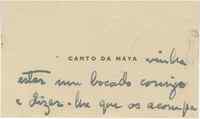 CANTO DA MAYA vinha
estar um bocado comigo
e dizer-lhe que os acompa